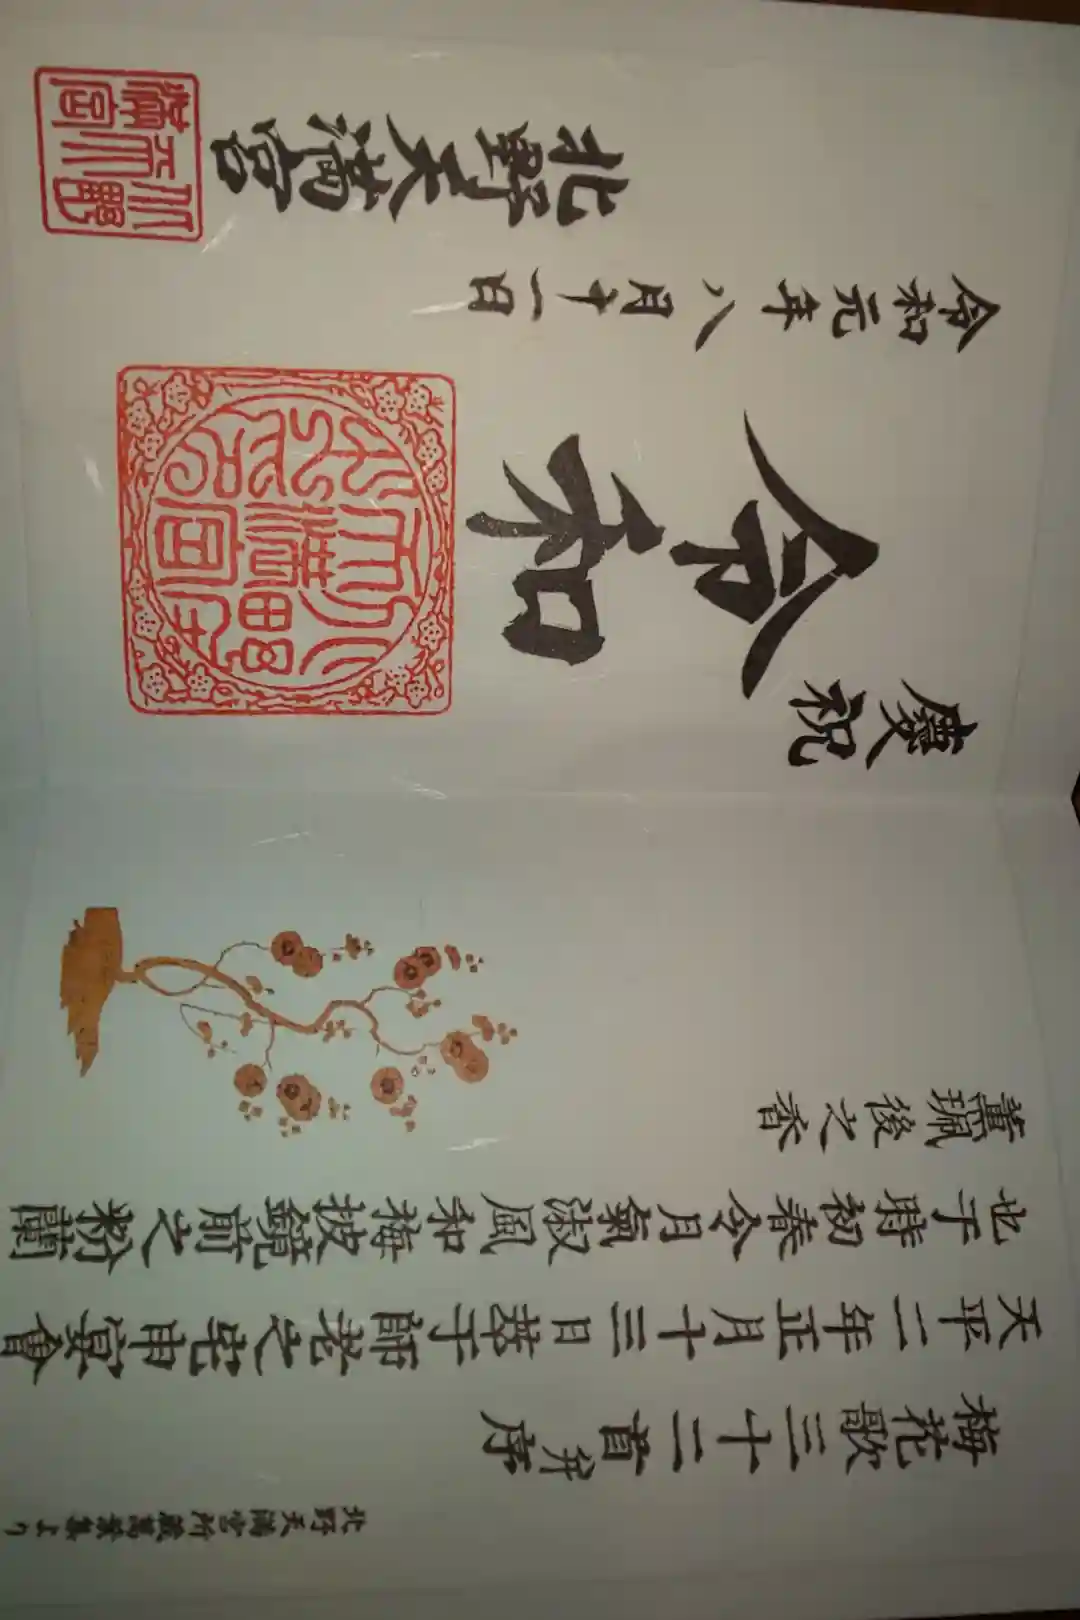 北野天満宮所蔵萬葉集より
梅花歌三十二首并序
天平二年正月十三日萃于師老之宅申宴會
也于時初春令月氣淑風和梅披鏡前之粉蘭
薫珮後之香
慶祝
令和
令和元年八月十一日
北野天満宮